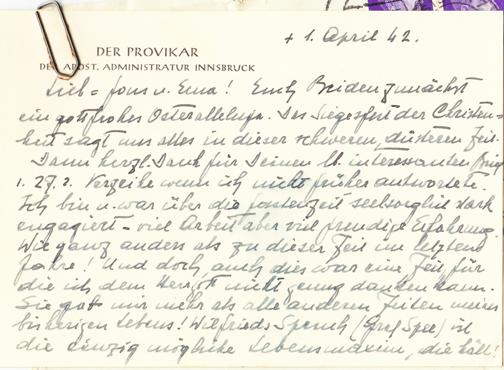 + 1. April 42.
DER PROVIKAR
DER APOST. ADMINISTRATUR INNSBRUCK
Lieb = Jons u. Erna! Euch Beiden zunächst
ein gottfrohes Osteralleluja. Das Siegesfest der Christen-
heit sagt uns alles in dieser schweren, düsteren Zeit.
Dann herzl. Dank für Deinen lb. interessanten Brief
v. 27.2. Verzeihe wenn ich nicht früher antwortete.
Ich bin u. war über die Fastenzeit seelsorglich stark
engagiert - viel Arbeit aber viel freudige Erfahrung.
Wie ganz anders als zu dieser Zeit im letzten
Jahre! Und doch, auch dies war eine Zeit, für
die ich dem Herrgott nicht genug danken kann.
Sie gab mir mehr als alle anderen Zeiten meines
bisherigen Lebens! Wilfrieds Spruch (Graf Spee) ist
die einzig mögliche Lebensmaxime, die hält!